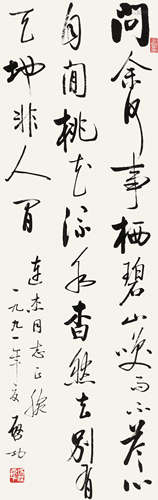 问余何事栖碧山笑而不答心
自闲桃花流水杳然去别有
天地非人间
连杰同志正腕
一九九一年夏 启功